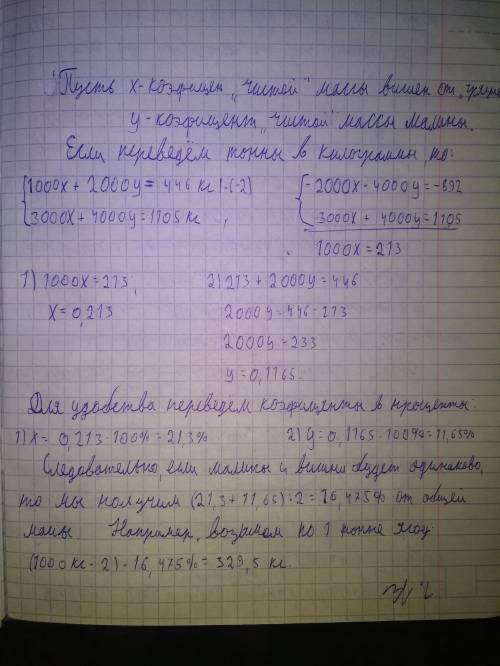 Пусть x-коэфицен "чистой" массы вишен от
y-коэфицент "чистой" массы малины.
Если переведём тонны в килограммы, то:
{1000x + 2000y = 446 кг |·(-2)
{3000x + 4000y = 1105 кг ,
{-2000x - 4000y = -892
3000x + 4000y = 1105
1000x = 213
1) 1000x = 213;
x = 0,213
2) 213 + 2000y = 446
2000y = 446 - 213
2000y = 233
y = 0,1165.
Для удобства переведём коэфиценты в проценты:
1) x = 0,213·100% = 21,3%
2) y = 0,1165·100% = 11,65%
Следовательно, если малины и вишни будет одинаково,
то мы получим (21,3 + 11,65) : 2 = 16,475% от общей
массы. Например, возьмём по 1 тонне ягод:
(1000 кг · 2) · 16,475% = 329,5 кг.